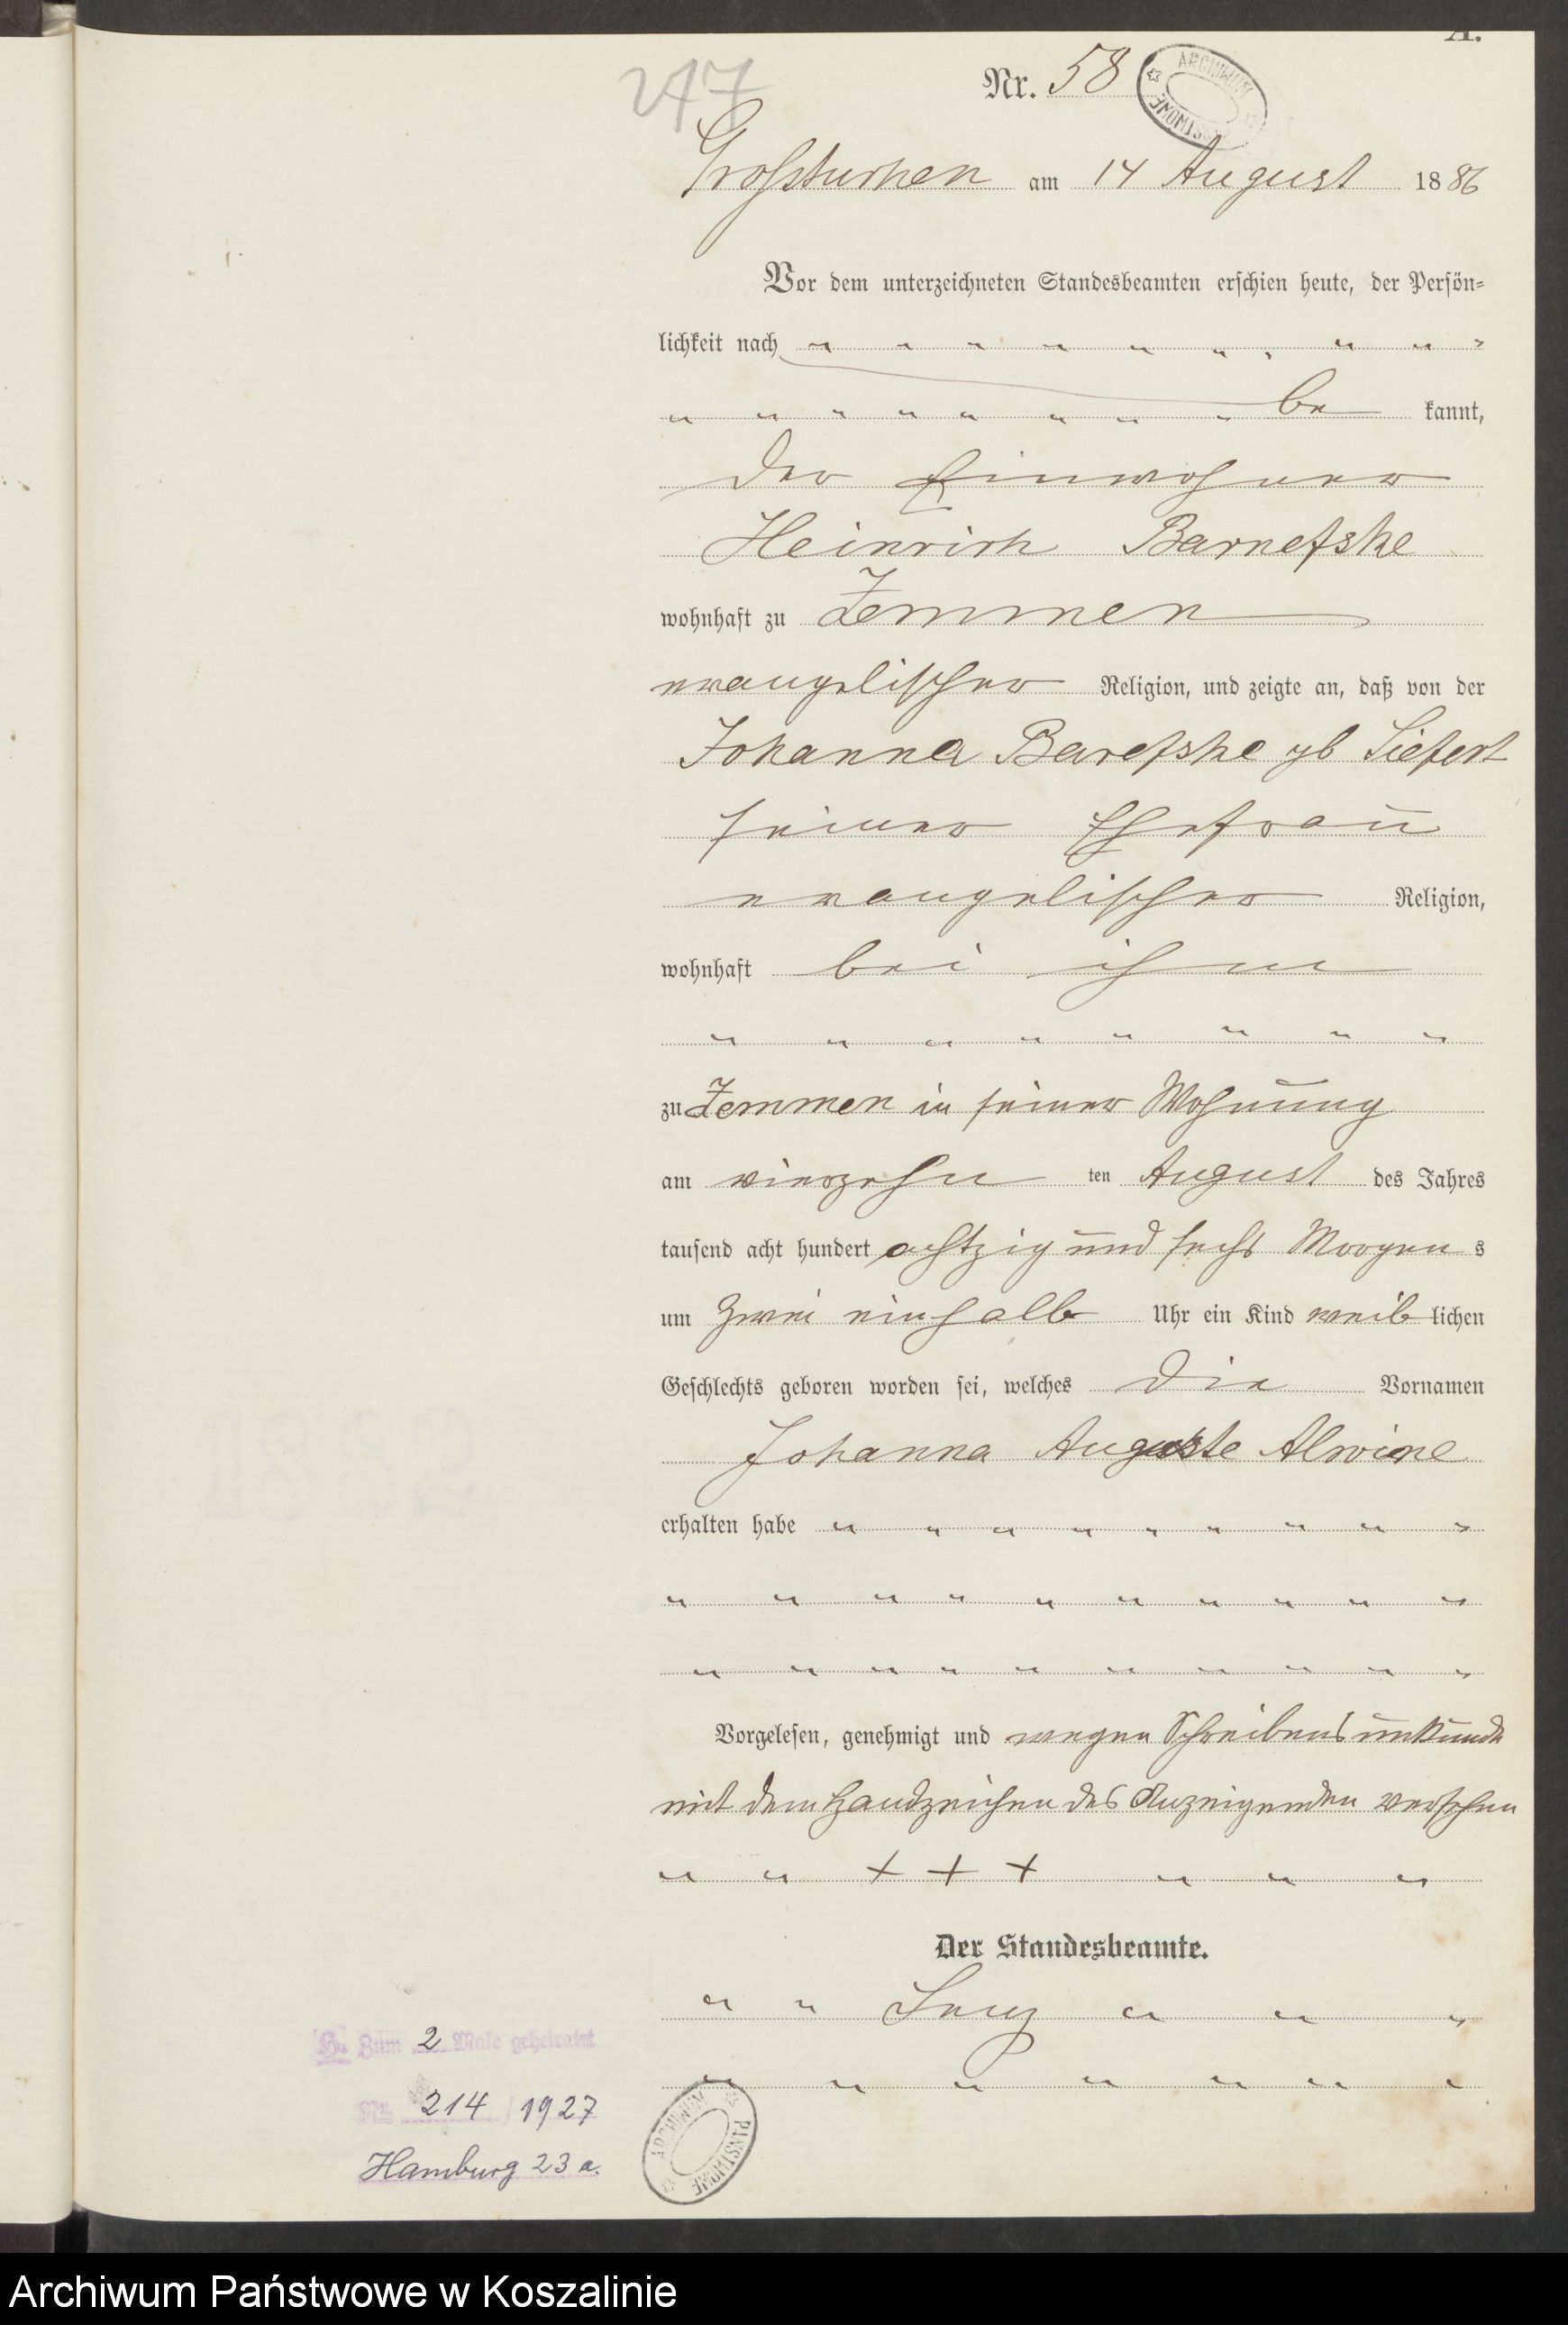 A.
247
Nr. 58
ARCHIWUM PAŃSTWOWE
Großtuchen am 14 August 1886
Vor dem unterzeichneten Standesbeamten erschien heute, der Persön-
lichkeit nach " " " " " " " " "
" " " " " " " " be kannt,
der Einwohner
Heinrich Barnefske
wohnhaft zu Zemmen
evangelischer Religion, und zeigte an, daß von der
Johanna Barefske gb Siefert
seiner Ehefrau
evangelischer Religion,
wohnhaft bei ihm
" " " " " " " "
zu Zemmen in seiner Wohnung
am vierzehn ten August des Jahres
tausend acht hundert achtzig und sechs Morgens
um zwei einhalb Uhr ein Kind weiblichen
Geschlechts geboren worden sei, welches die Vornamen
Johanna Auguste Alwine
erhalten habe " " " " " " " " "
" " " " " " " " " "
" " " " " " " " " "
Vorgelesen, genehmigt und wegen Schreibensunkunde
mit dem Handzeichen des Anzeigenden versehen
" " + + + " " "
Der Standesbeamte.
" " " " "
" " " " " " "
H. Zum 2 Male geheiratet
Nr. 214 / 1927
Hamburg 23 a.
ARCHIWUM PAŃSTWOWE
Archiwum Państwowe w Koszalinie